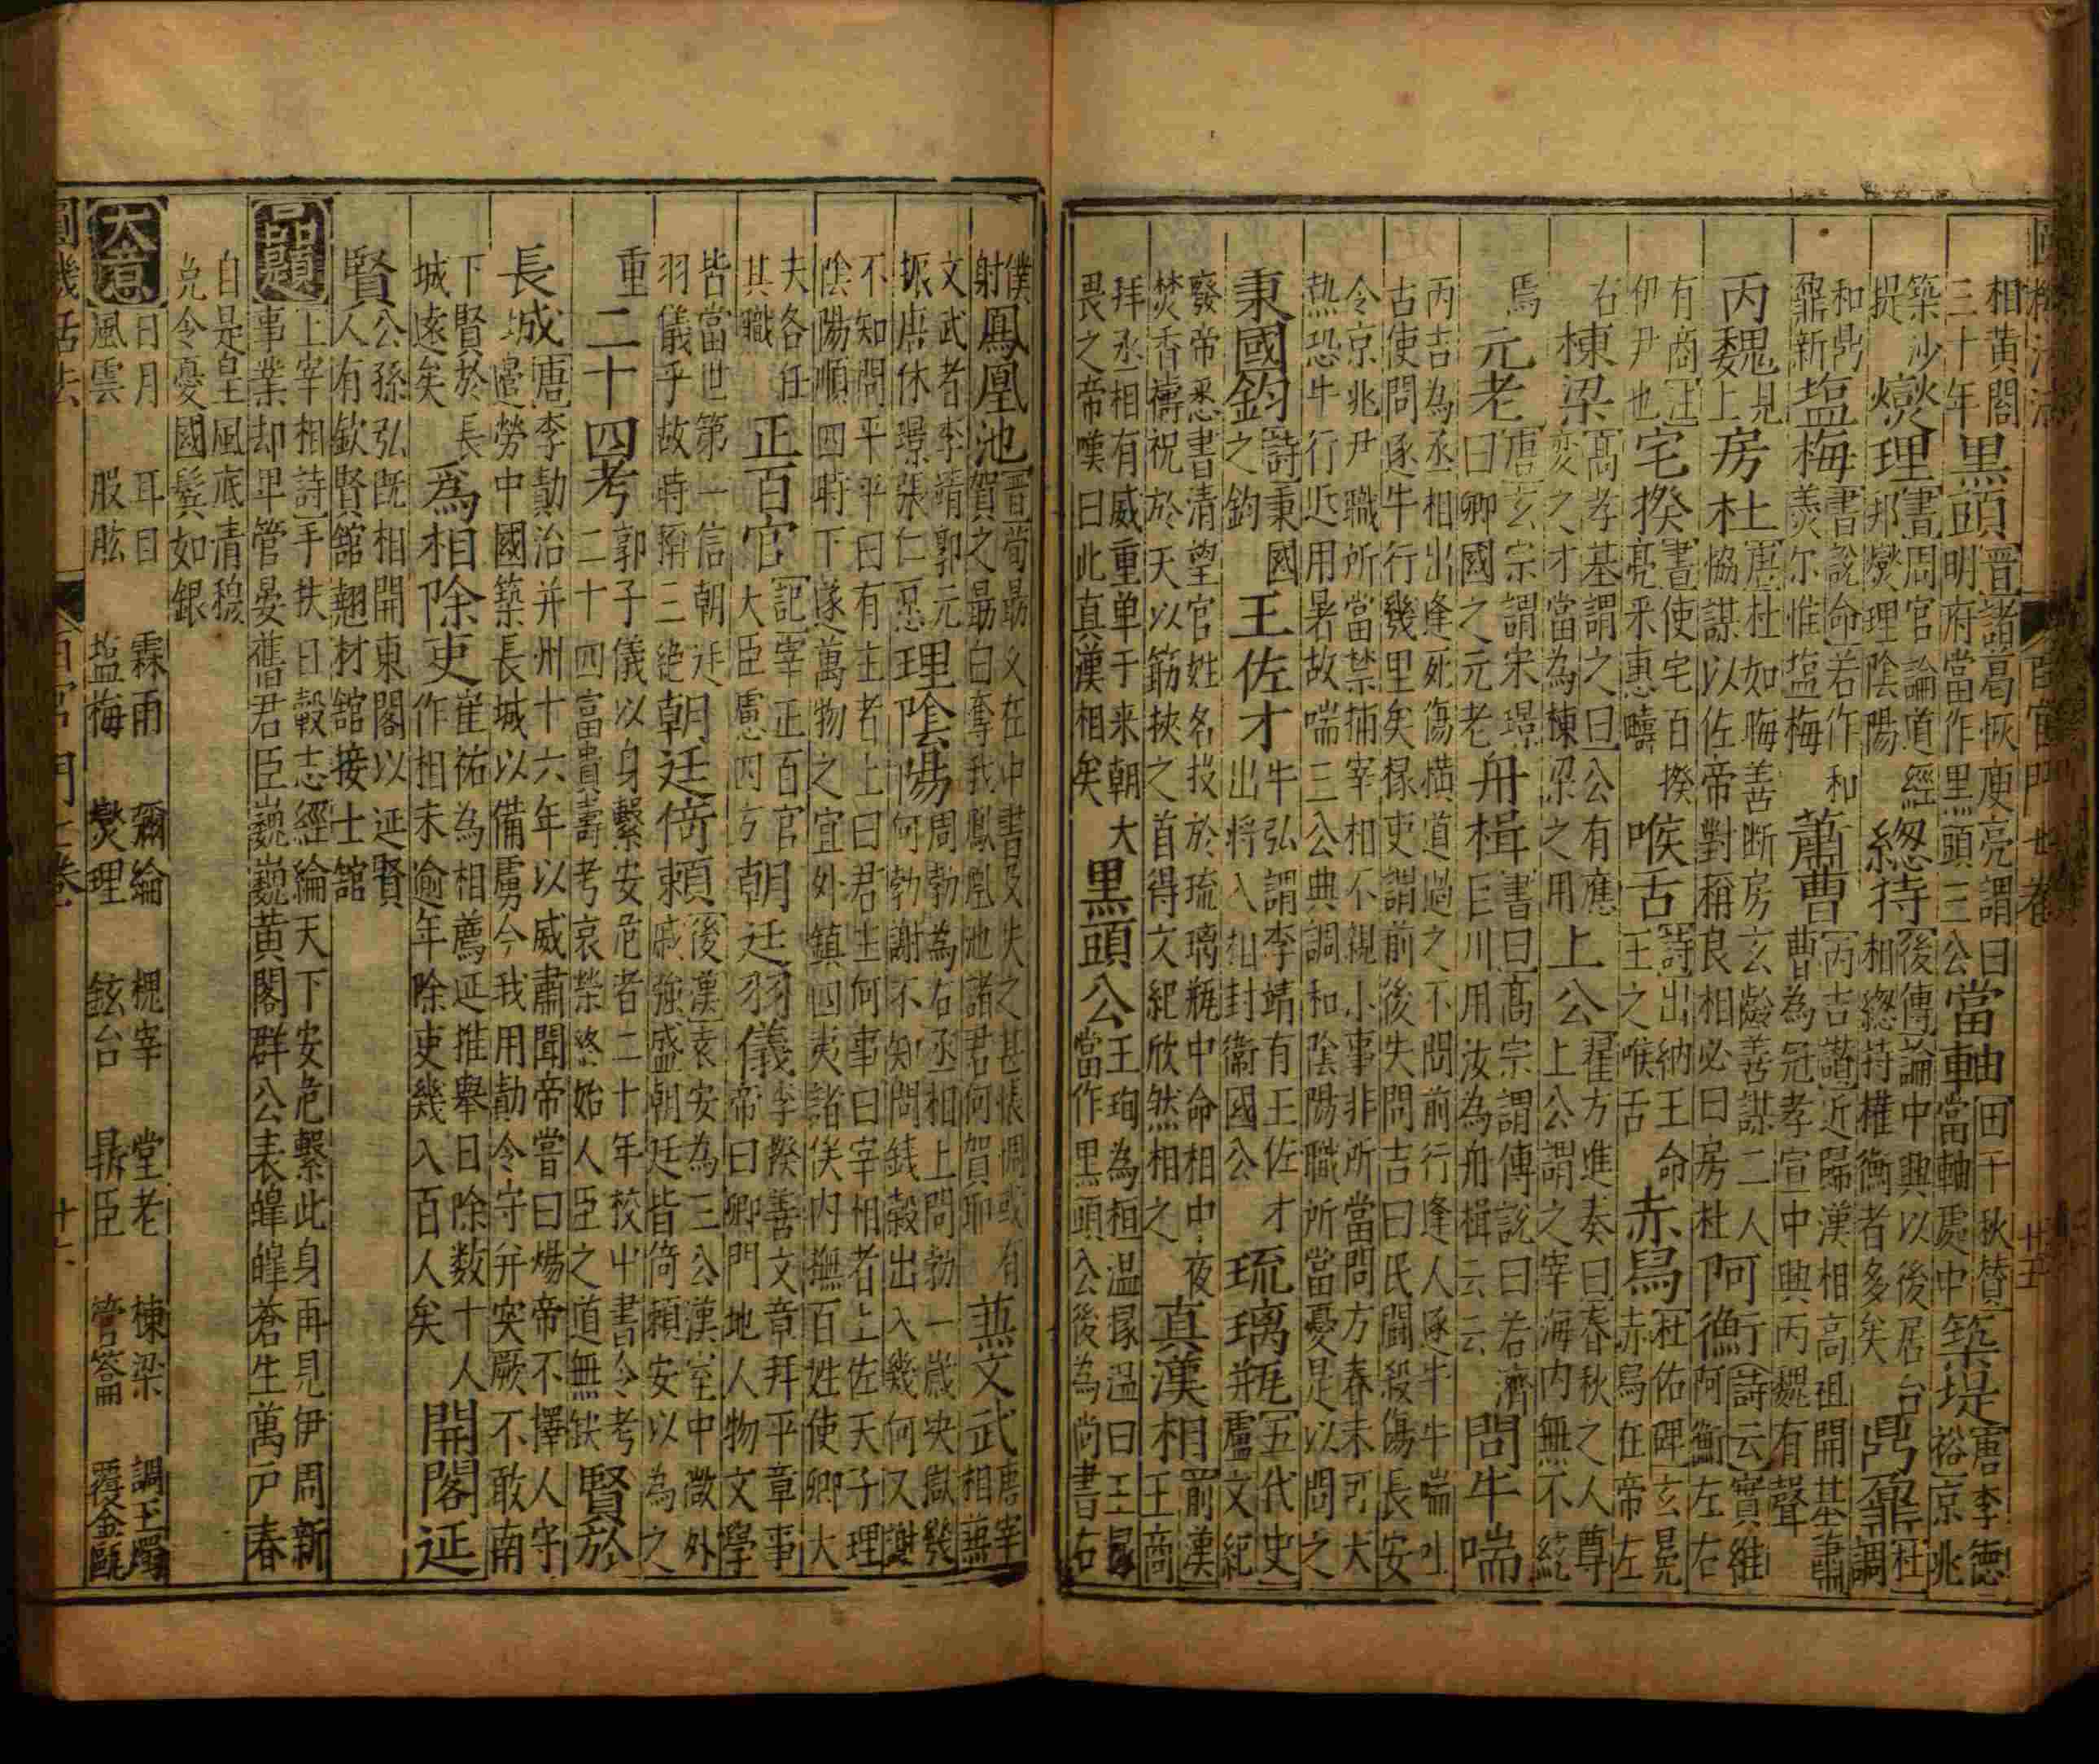 相黃閣三十年 黒頭 晋諸葛恢庾亮謂曰明府當作黒頭三公 當軸 田千秋賛當軸處中 築堤 唐李德裕京兆
築沙堤 燮理 書周官論道經邦燮理陰陽 緫持 後傳論中興以後居台相緫持權衡者多矣 鼎鼐 杜調
和鼎鼐新 塩梅 書說命若作和羹尔惟塩梅 蕭曹 丙吉讃近歸漢相高祖開基蕭曹為冠孝宣中興丙魏有聲
丙魏 見上 房杜 唐杜如晦善断房玄齡善謀二人協謀以佐帝對稱良相必曰房杜 阿衡 詩云實維阿衡左右
有商註伊尹也 宅揆 書使宅百揆亮采惠疇 喉舌 詩出納王命王之喉舌 赤舄 杜佑碑玄冕赤舄在帝左
右 棟梁 髙孝基謂之曰公有應変之才當為棟梁之用 上公 翟方進奏曰春秋之人尊上公謂之宰海内無不統
焉 元老 唐玄宗謂宋璟曰卿國之元老 舟楫 書曰髙宗謂傳說曰若濟巨川用汝為舟楫云云 問牛喘
丙吉為丞相出逢死傷橫道過之不問前行逢人逐牛牛喘吐古使問逐牛行幾里矣掾吏謂前後失問吉曰民鬭殺傷長安
令京兆尹職所當禁捕宰相不親小事非所當問方春未可大熱恐牛行近用暑故喘三公典調和陰陽職所當憂是以問之
秉國鈞 詩秉國之鈞 王佐才 牛弘謂李靖有王佐才出將入相封衞國公 琉璃瓶 五代史盧文紀
廢帝悉書清望官姓名投於琉璃瓶中命相中夜焚香禱祝於天以筯挾之首得文紀欣然相之 真漢相 前漢王商
拜丞相有威重单于来朝大畏之帝嘆曰此真漢相矣 黒頭公 王珣為桓温掾温曰王掾當作黒頭公後為尚書右
僕射 鳳凰池 晋荀勗久在中書及失之甚悵惆或有賀之勗曰奪我鳳凰池諸君何賀耶 蕪文武 唐宰相蕪
文武者李靖郭元振唐休璟張仁愿 理陰陽 周勃為右丞相上問勃一歲央獄幾何勃謝不知問錢穀出入幾何又謝
不知問平平曰有主者上曰君主何事曰宰相者上佐天子理陰陽順四時下遂萬物之宜外鎮四夷諸侯内撫百姓使卿大
夫各任其職 正百官 記宰正百官大臣慮四方 朝廷羽儀 李揆善文章拜平章事帝曰卿門地人物文學
皆當世第一信朝廷羽儀乎故時稱三絶 朝廷倚頼 後漢袁安為三公漢室中微外戚強盛朝廷皆倚頼安以為之
重 二十四考 郭子儀以身繫安危者二十年校中書令考二十四富貴壽考哀榮終始人臣之道無缺 賢於
長城 唐李勣治并州十六年以威肅聞帝嘗曰煬帝不擇人守邉勞中國築長城以備虜今我用勣令守并突厥不敢南
下賢於長城遠矣 為相除吏 崔祐為相薦延推舉日除数十人作相未逾年除吏幾八百人矣 開閣延
賢 公孫弘既相開東閣以延賢人有欽賢舘翹材舘接士舘
品題 上宰相詩手扶日轂志經綸天下安危繫此身再見伊周新事業却卑管晏舊君臣巍巍黃閣群公表皥皥蒼生萬戸春
自是皇風底清穆免令憂國鬢如銀
大意 日月 耳目 霖雨 彌綸 槐宰 堂老 棟梁 調玉燭
風雲 股肱 塩梅 燮理 鉉台 鼎臣 管籥 覆金甌
百官門